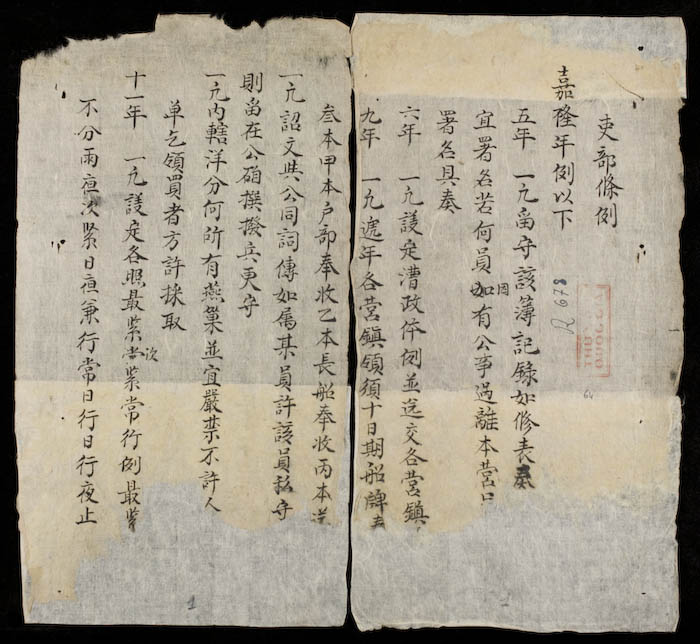 吏部條例
嘉隆年例以下
五年 一凢留守該簿記錄如修表奏
宜署各若何員因如有公事過離本營
署名具奏
六年 一凢議定漕政体例並迻交各營鎮
九年 一凢遞年各營鎮領須十日期船牌
叁本甲本户部奉收乙本長船奉收丙本
一凢詔文與公同詞傳如属某員許該員私守
則畄在公硝撰撥兵更守
一凢内轄洋分何所有燕巢並宜嚴禁不許人
单乞領買者方許採取
十一年 一凢議定各照最緊次緊常行例最緊
不分雨夜次緊日夜兼行常日行日行夜止
R 678
64
1